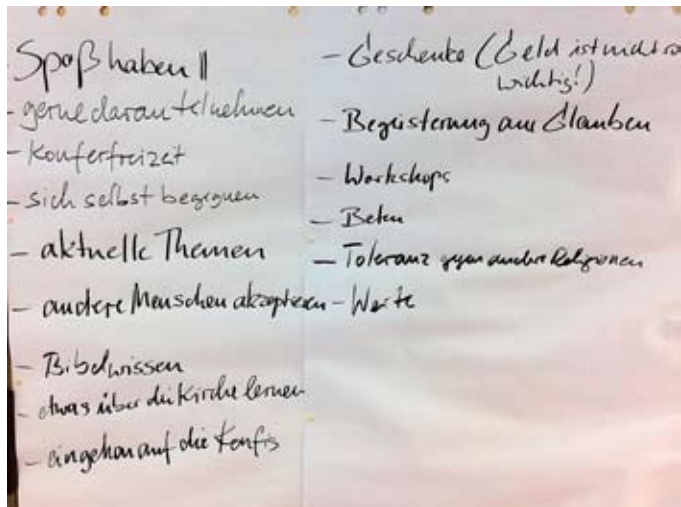 - Spaß haben II
- gerne daran teilnehmen
- Konferfreizeit
- sich selbst begegnen
- aktuelle Themen
- andere Menschen akzeptieren
- Bibelwissen
- etwas über die Kirche lernen
- eingehen auf die Konfis
- Geschenke (Geld ist nicht so
wichtig!)
- Begeisterung am Glauben
- Workshops
- Beten
- Toleranz gegen andere Religionen
- Werte